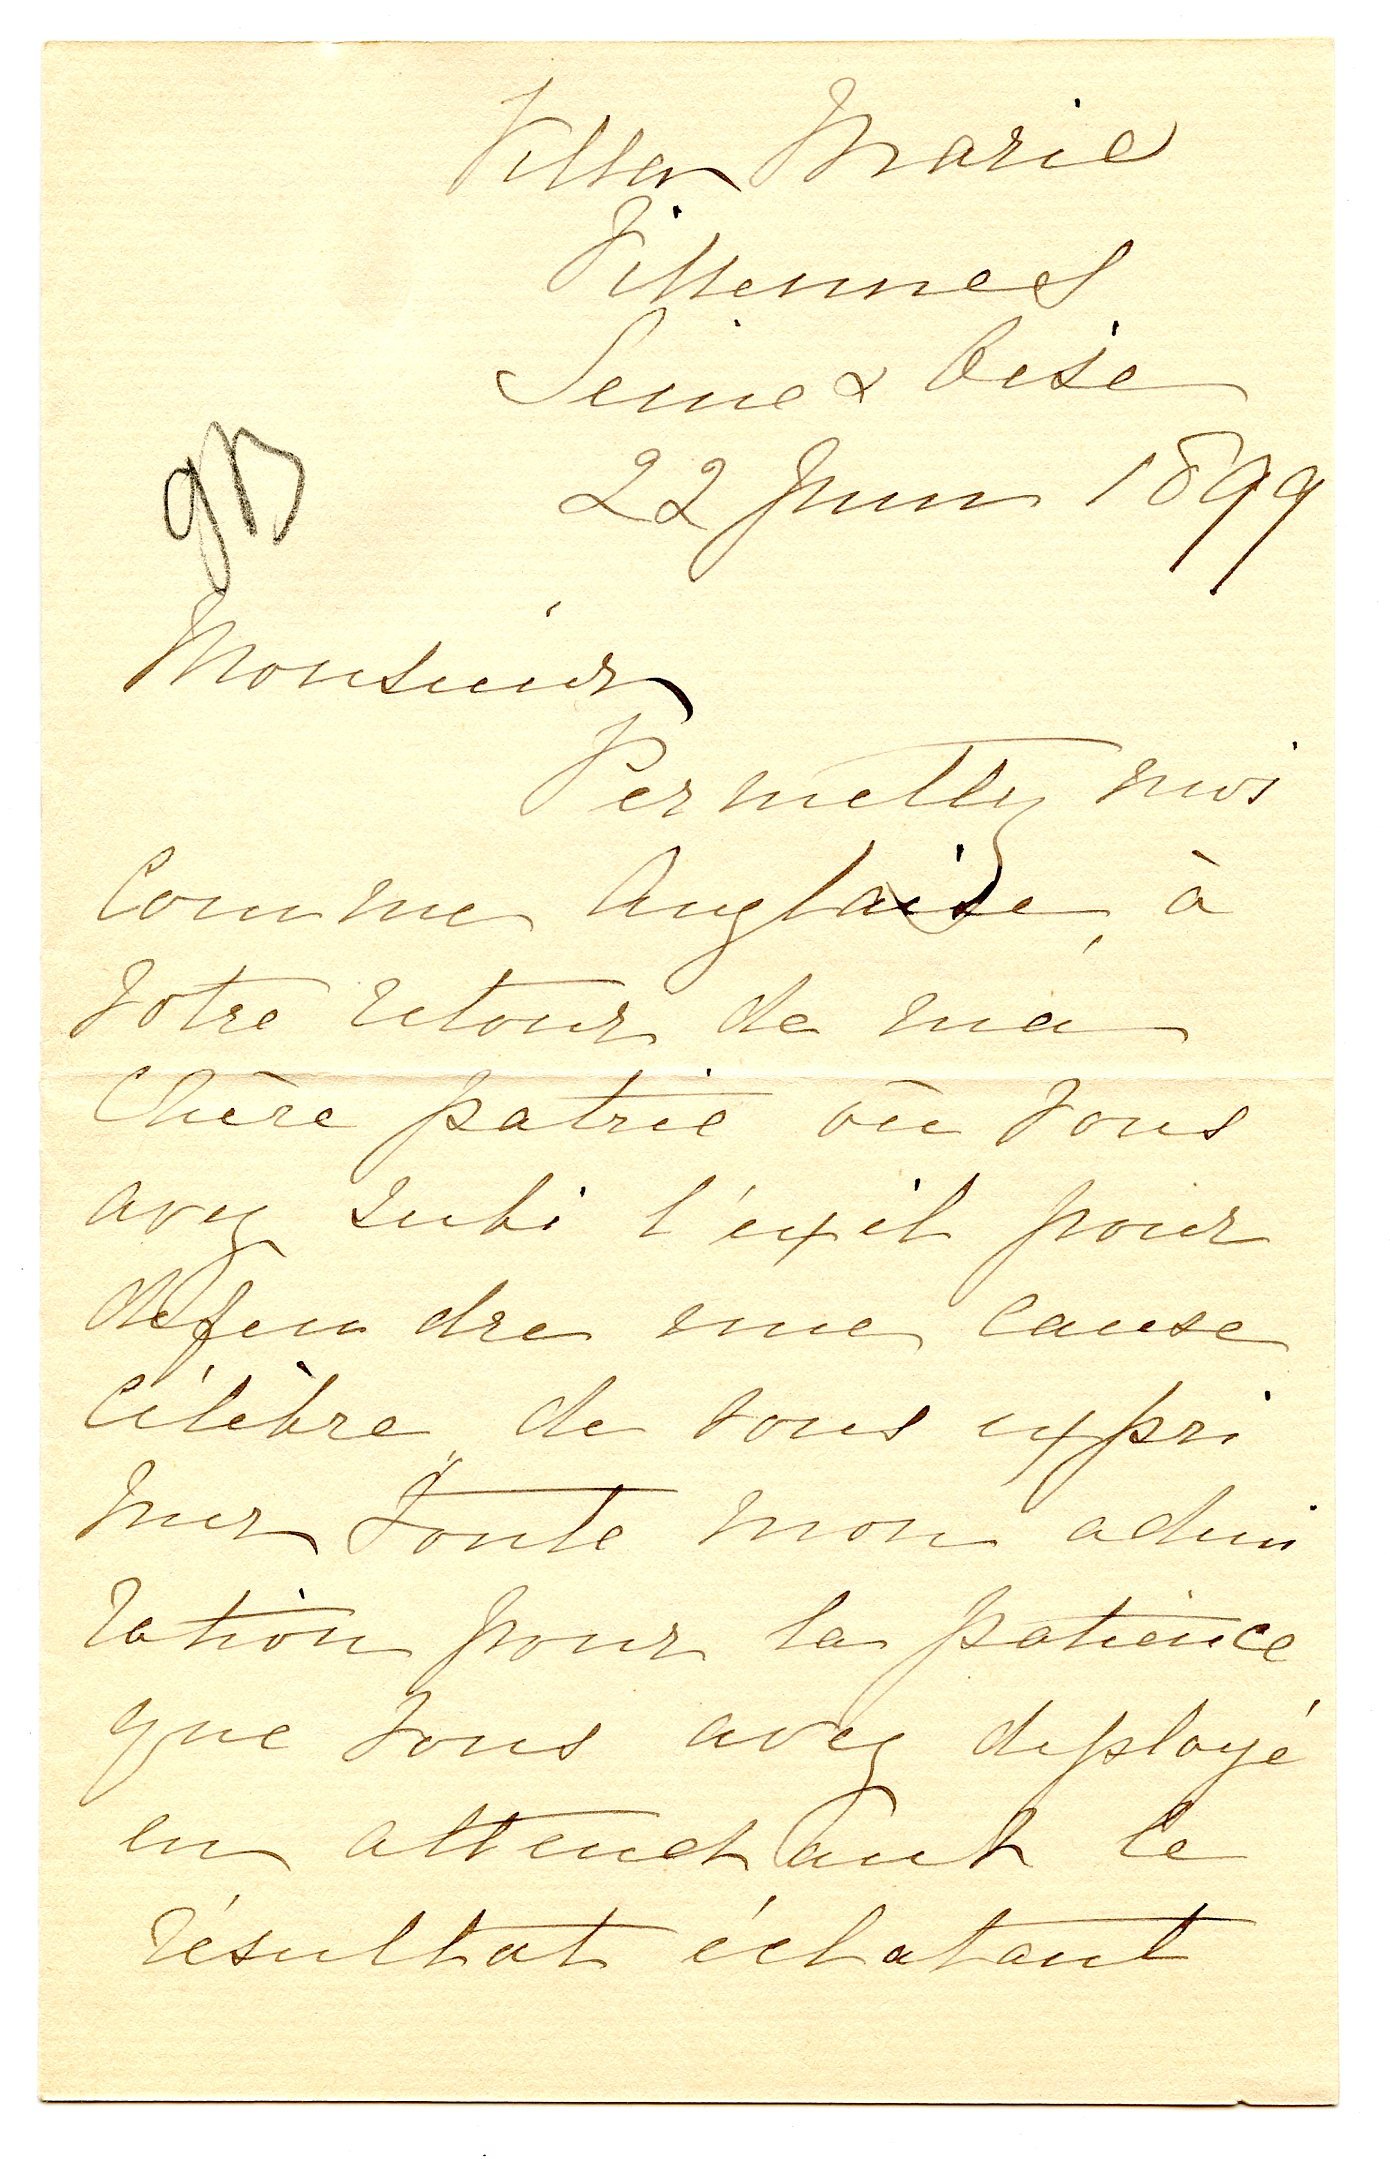 Villa Marie
Villennes
Seine & Oise
22 Juin 1899
GB
Monsieur
Permettez moi
comme Anglaise, à
votre retour de ma
chère patrie où vous
avez subi l'exil pour
défendre une cause
célèbre, de vous expri
mer toute mon admi
ration pour la patience
que vous avez deployé
en attendant le
résultat éclatant